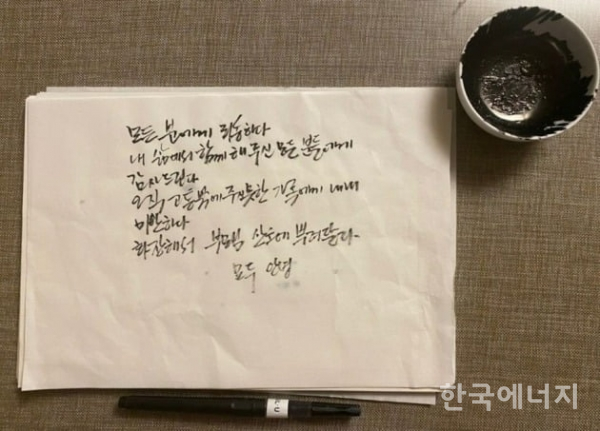 모든 분에게 죄송하다
내 삶에서 함께 해 주신 모든 분들에게
감사드린다
오직 고통밖에 주지 못한 가족에게 내내
미안하다
화장해서 부모님 산소에 뿌려달라
모두 안녕
한국에너지